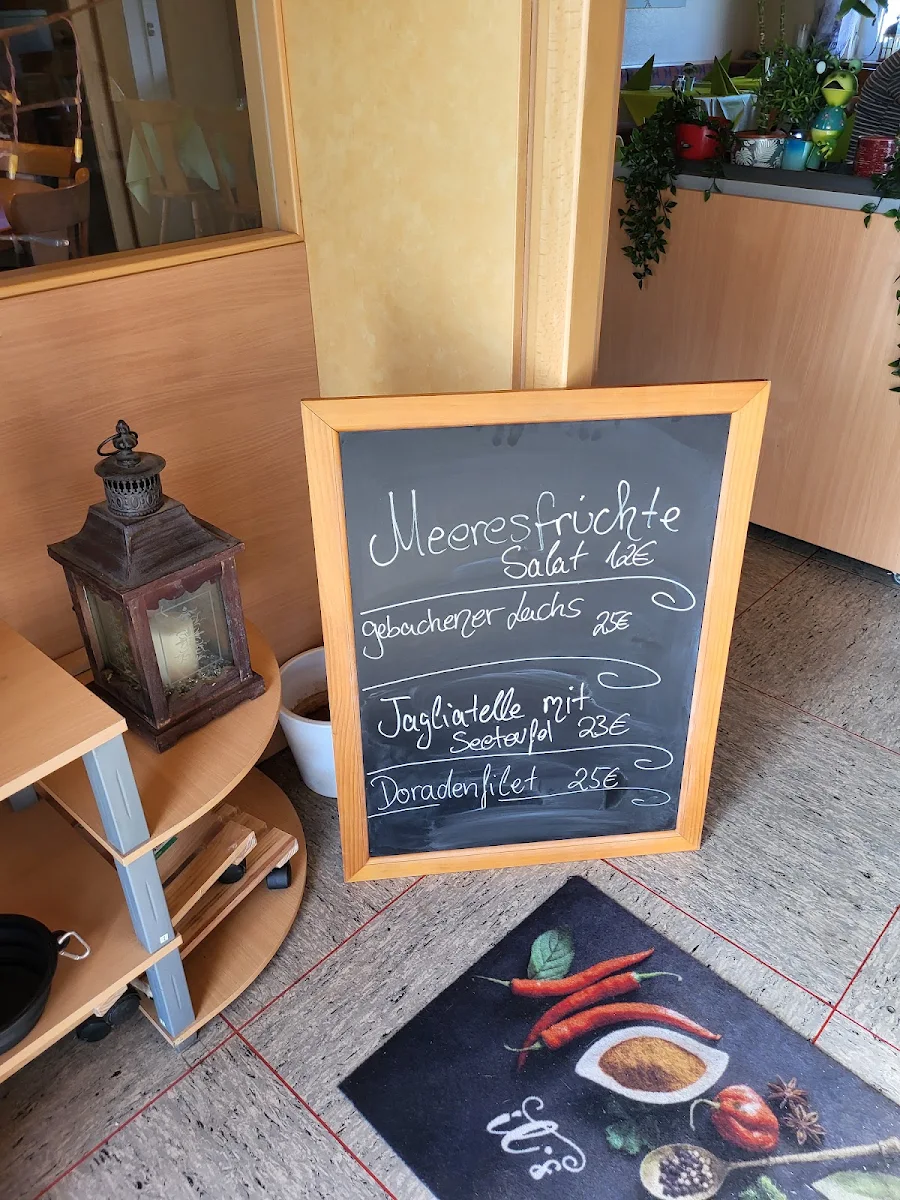 Meeresfrüchte
Salat 12€
gebachener Lachs 25€
Tagliatelle mit
Seeteufel 23€
Doradenfilet 25€